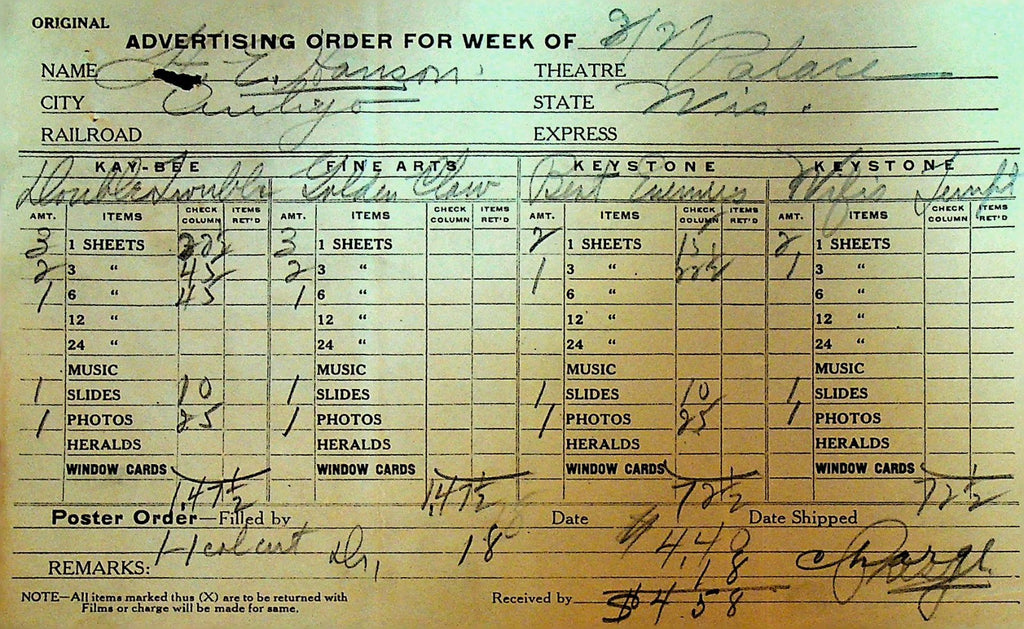 ORIGINAL
ADVERTISING ORDER FOR WEEK OF 3/27
NAME H. E. Hanson. THEATRE Palace
CITY Antigo STATE Wis.
RAILROAD EXPRESS
KAY-BEE FINE ARTS KEYSTONE KEYSTONE
Double Trouble Golden Claw Best Enemies Wifes
AMT. ITEMS CHECK COLUMN ITEMS RET'D AMT. ITEMS CHECK COLUMN ITEMS RET'D AMT. ITEMS CHECK COLUMN ITEMS RET'D AMT. ITEMS CHECK COLUMN ITEMS RET'D
3 1 SHEETS 22½ 3 1 SHEETS 2 1 SHEETS 15 2 1 SHEETS
2 3 " 45 2 3 " 1 3 " 22½ 1 3 "
1 6 " 45 1 6 " 6 " 6 "
12 " 12 " 12 " 12 "
24 " 24 " 24 " 24 "
MUSIC MUSIC MUSIC MUSIC
1 SLIDES 10 1 SLIDES 1 SLIDES 10 1 SLIDES
1 PHOTOS 25 1 PHOTOS 1 PHOTOS 25 1 PHOTOS
HERALDS HERALDS HERALDS HERALDS
WINDOW CARDS WINDOW CARDS WINDOW CARDS WINDOW CARDS
1,47½ 1,47½ 72½ 72½
Poster Order—Filled by Date Date Shipped
1-1 col cut 18 $4,40 Charge
REMARKS: 18
NOTE—All items marked thus (X) are to be returned with
Films or charge will be made for same.
Received by $4 58